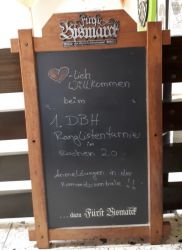 Fürst
Bismarck
-lich
Willkommen
beim
1. DBH
Ranglistenturnier
in
Aachen 20
Anmeldungen in der
Kommandozentrale !!
...dazu Fürst Bismarck